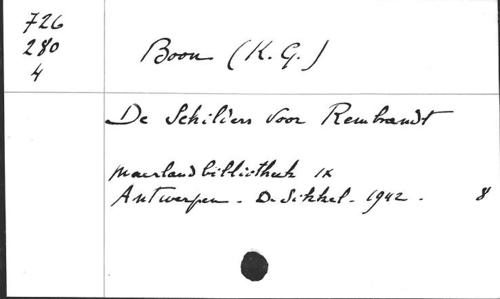 726
280
4
Boon (K. G.)
De Schilders voor Rembrandt
Maerlandbibliotheek IX
Antwerpen - De Sikkel - 1942 - 8